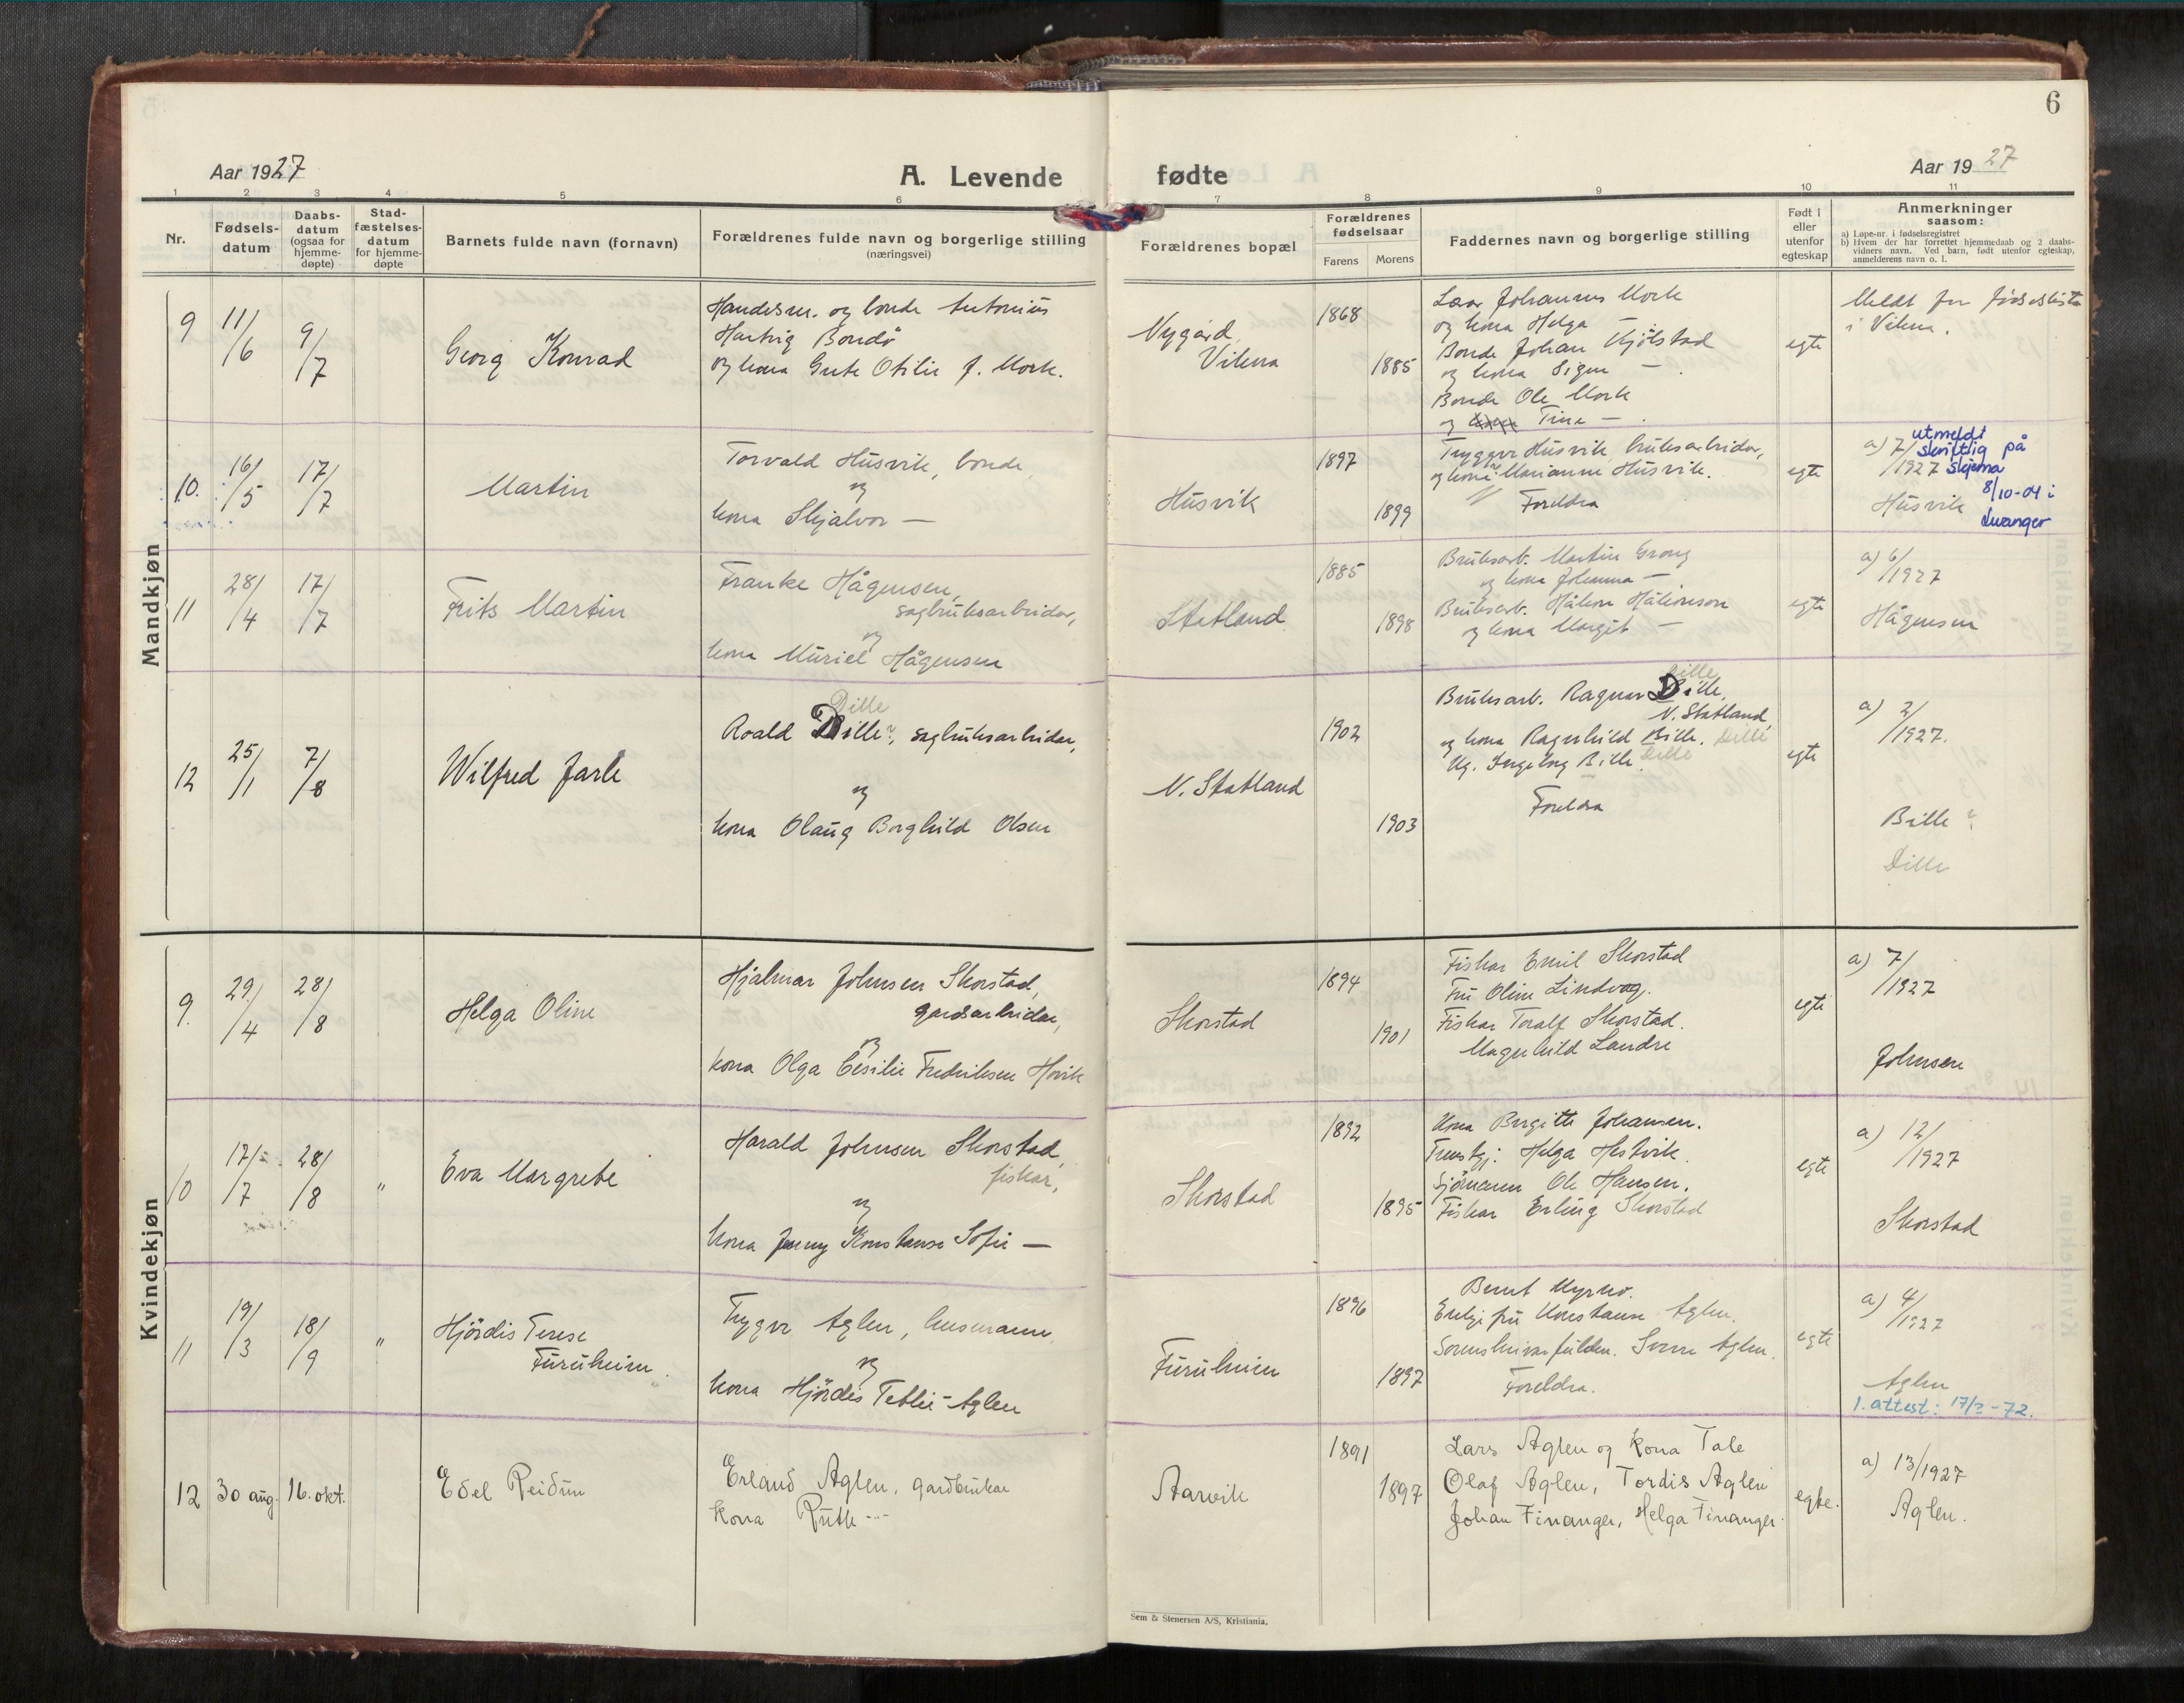 6
Aar 1927
A. Levende
fødte
Aar 1927
1 2 3 4 5 6 7 8 9 10 11
Nr.
Fødsels-
datum
Daabs-
datum
(ogsaa for
hjemme-
døpte)
Stad-
fæstelses-
datum
for hjemme-
døpte
Barnets fulde navn (fornavn)
Forældrenes fulde navn og borgerlige stilling
(næringsvei)
Forældrenes bopæl
Forældrenes
fødselsaar
Farens
Morens
Faddernes navn og borgerlige stilling
Født i
eller
utenfor
egteskap
Anmerkninger
saasom:
a) Løpe-nr. i fødselsregistret
b) Hvem der har forrettet hjemmedaab og 2 daabs-
vidners navn. Ved barn, født utenfor egteskap,
anmelderens navn o. l.
Mandkjøn
9
11/6
9/7
Georg Konrad
og kona Otilie J. Mork.
Nygård,
Vikna
1868
1885
Lars Johannes Mork
og kona Helga —
Bonde Johan
og kona Signe —
Bonde Ole Mork
og Tine —
egte
i Vikna.
10.
16/5
17/7
Martin
Torvald Husvik, bonde
og
kona Skjalvor —
Husvik
1897
1899
Trygger Husvik, bruksarbeider,
og kona Marianne Husvik.
Foreldra
egte
a) 7/1927
Husvik
utmeldt
skriftlig på
skjema
8/10-04 i
Levanger
11
28/4
17/7
Frits Martin
Franke Hågensen,
sagbruksarbeidar,
og
kona Muriel Hågensen
Statland
1885
1898
Bruksarb. Martin Grong
og kona Johanna —
Bruksarb. Håkon Håkonson
og kona Margit —
egte
a) 6/1927
Hågensen
12
25/1
7/8
Wilfred Jarle
Dille
Roald Dille?, sagbruksarbeidar,
og
kona Olaug Borghild Olsen
N. Statland
1902
1903
Dille
Bruksarb. Ragnar Dille,
N. Statland,
og kona Ragnhild Bille. Dille
Ug. Ingeborg Bille. Dille
Foreldra
egte
a) 2/1927.
Bille?
Dille
Kvindekjøn
9.
29/4
28/8
Helga Oline
Hjalmar Johnsen Skorstad,
gardsarbeidar,
og
kona Olga Cesilie Fredriksen Hovik
Skorstad
1894
1901
Fiskar Emil Skorstad
Fru Oline Lindvag.
Fiskar Toralf Skorstad.
Magnhild Landre
egte
a) 7/1927
Johnsen
10
17/7
28/8
"
Eva Margrete
Harald Johnsen Skorstad,
fiskar,
og
kona Jenny Konstanse Sofie —
Skorstad
1892
1895
Kona Birgitte Johansen.
Tenestgj: Helga Hestvik.
Sjömann Ole Hansen.
Fiskar Erling Skorstad
egte
a) 12/1927
Skorstad
11
19/3
18/9
"
Hjördis Terese
Furuheim.
Trygve Aglen, husmann
og
kona Hjördis Aglen
Furuheim
1896
1897
Bernt Myrmo.
Enkje fru Konstanse Aglen.
Aglen.
Foreldra.
egte
a) 4/1927
Aglen
1. attest: 17/2-72.
12
30 aug.
16. okt.
Edel Reidun
Erland Aglen, gardbrukar
kona Ruth —
Aarvik
1891
1897
Lars Aglen og kona Tale
Olaf Aglen, Tordis Aglen
Johan Finanger, Helga Finanger.
egte.
a) 13/1927
Aglen.
Sem & Stenersen A/S, Kristiania.